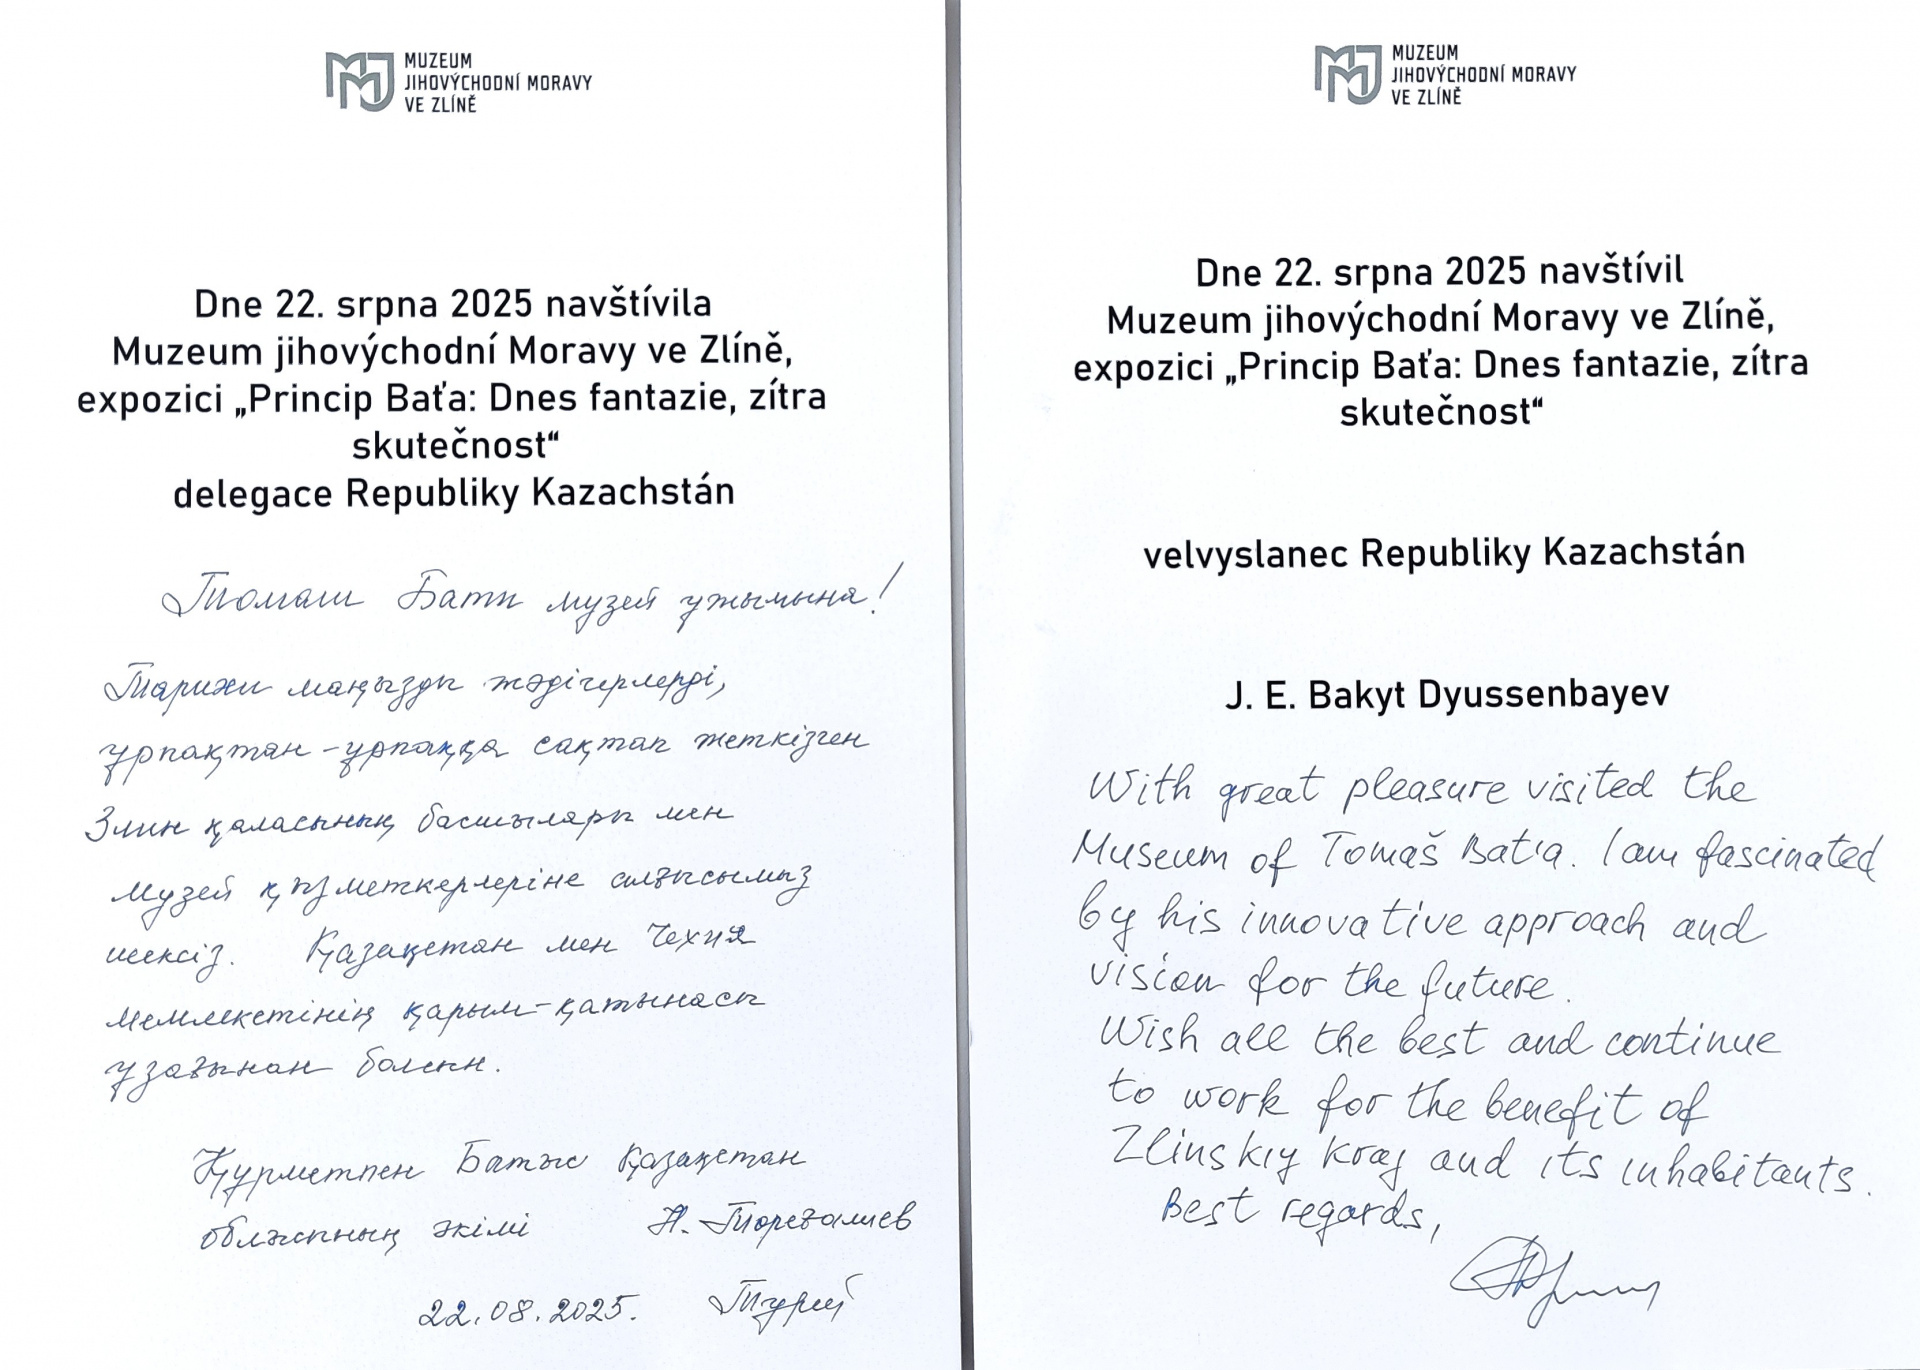 MUZEUM
JIHOVÝCHODNÍ MORAVY
VE ZLÍNĚ
Dne 22. srpna 2025 navštívila
Muzeum jihovýchodní Moravy ve Zlíně,
expozici „Princip Baťa: Dnes fantazie, zítra
skutečnost“
delegace Republiky Kazachstán
Томаш Бати музей ұжымына!
Тарихи маңызды жәдігерлерді,
ұрпақтан-ұрпаққа сақтап жеткізген
Злин қаласының басшылары мен
музей қызметкерлеріне алғысымыз
шексіз. Қазақстан мен Чехия
мемлекетінің қарым-қатынасы
ұзағынан болсын.
Құрметпен Батыс Қазақстан
облысының әкімі Н. Төреғалиев
22.08.2025.
MUZEUM
JIHOVÝCHODNÍ MORAVY
VE ZLÍNĚ
Dne 22. srpna 2025 navštívil
Muzeum jihovýchodní Moravy ve Zlíně,
expozici „Princip Baťa: Dnes fantazie, zítra
skutečnost“
velvyslanec Republiky Kazachstán
J. E. Bakyt Dyussenbayev
With great pleasure visited the
Museum of Tomaš Bat'a. I am fascinated
by his innovative approach and
vision for the future.
Wish all the best and continue
to work for the benefit of
Zlinskiy Kraj and its inhabitants.
Best regards,